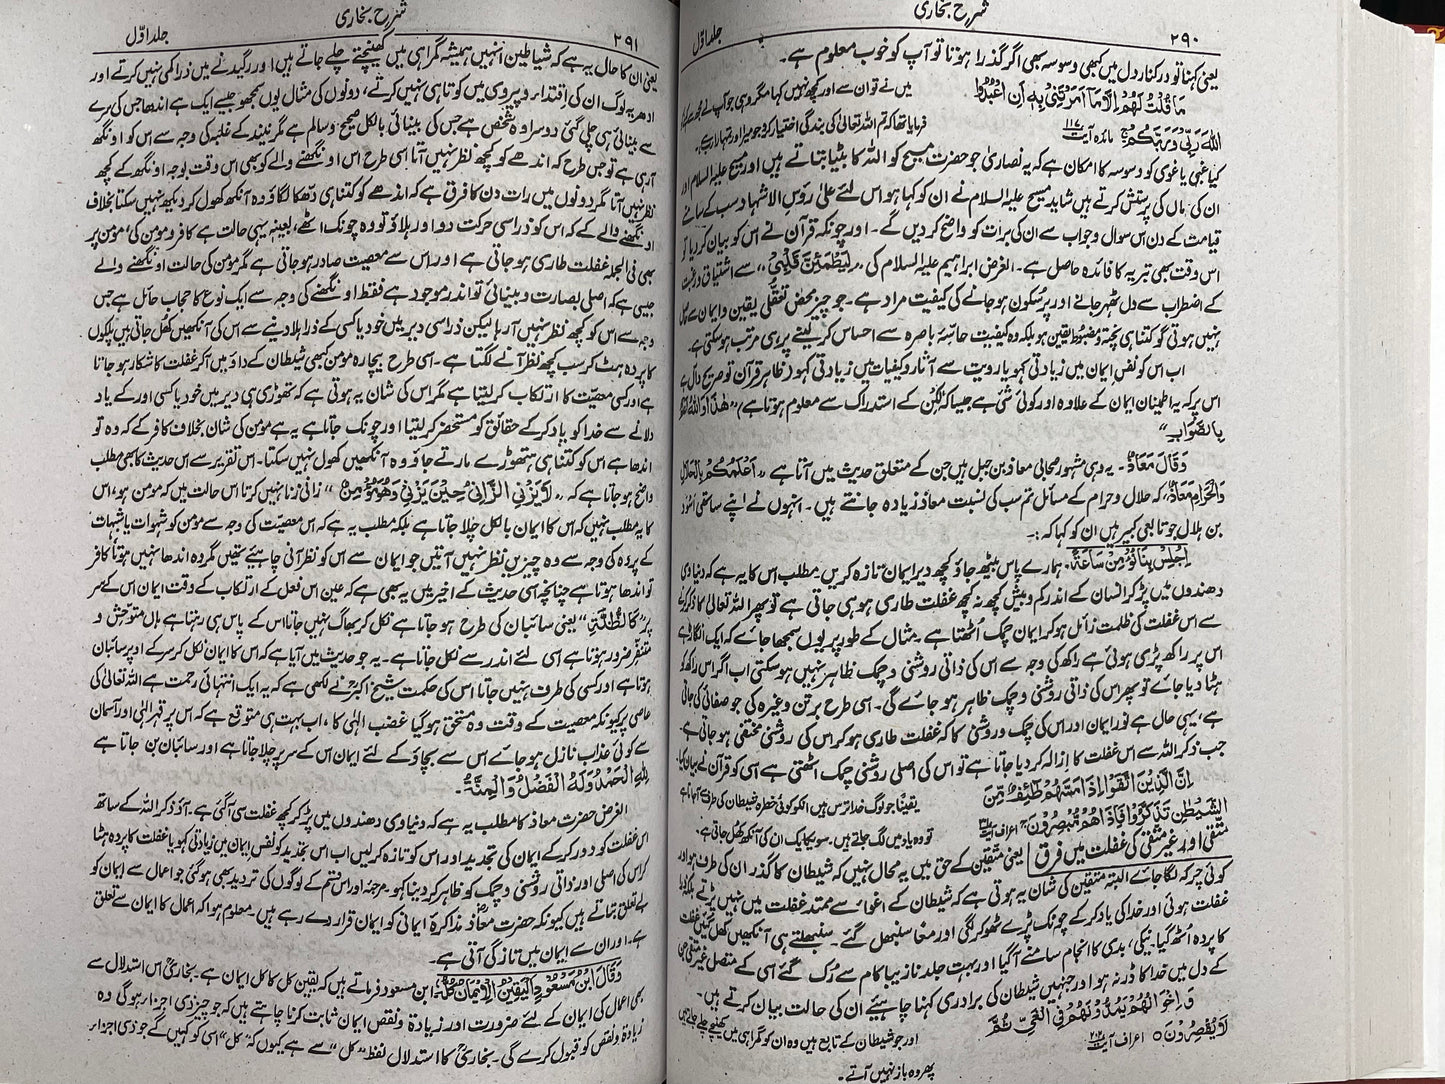 ۲۹۰
شرح بخاری
جلد اوّل
یعنی کہنا تو درکنار دل میں کبھی وسوسہ بھی اگر گذرا ہوتا تو آپ کو خوب معلوم ہے۔
مَا قُلْتُ لَهُمْ اِلَّا مَا اَمَرْتَنِیْ بِهٖ اَنِ اعْبُدُوا
اللهَ رَبِّیْ وَرَبَّکُمْ مائدہ آیت ۱۱۷
میں نے تو ان سے اور کچھ نہیں کہا مگر وہی جو آپ نے مجھ سے
فرمایا تھا کہ تم اللہ تعالیٰ کی بندگی اختیار کرو جو میرا اور تمہارا رب ہے۔
کیا غبی یا غوی کو وسوسہ کا امکان ہے کہ یہ نصاریٰ جو حضرت مسیح کو اللہ کا بیٹا بتاتے ہیں اور مسیح علیہ السلام اور
ان کی ماں کی پرستش کرتے ہیں شاید مسیح علیہ السلام نے ان کو کہا ہو اس لئے علیٰ رؤس الاشہاد سب کے سامنے
قیامت کے دن اس سوال و جواب سے ان کی براءت کو واضح کر دیں گے۔ اور چونکہ قرآن نے اس کو بیان کر دیا تو
اس وقت بھی تبریہ کا فائدہ حاصل ہے۔ الغرض ابراہیم علیہ السلام کی "لِیَطْمَئِنَّ قَلْبِیْ" سے اشتیاق و رغبت
کے اضطراب سے دل ٹھہر جانے اور پرسکون ہو جانے کی کیفیت مراد ہے۔ جو چیز محض تعقلی یقین و ایمان سے حاصل
نہیں ہوتی گو کتنا ہی پختہ و مضبوط یقین ہو بلکہ وہ کیفیت حاسّہ باصرہ سے احساس کر لینے پر ہی مرتب ہو سکتی ہے۔
اب اس کو نفس ایمان میں زیادتی کہو یا رویت سے آثار و کیفیات میں زیادتی کہو ظاہر قرآن تو صریح دال ہے
اس پر کہ یہ اطمینان ایمان کے علاوہ اور کوئی شئ ہے جیسا کہ لٰکِنْ کے استدراک سے معلوم ہوتا ہے، هٰذَا وَاللهُ اَعْلَمُ
بِالصَّوَابِ"
وَقَالَ مَعَاذٌ۔ یہ وہی مشہور صحابی معاذ بن جبل ہیں جن کے متعلق حدیث میں آتا ہے "اَعْلَمُکُمْ بِالْحَلَالِ
وَالْحَرَامِ مَعَاذٌ" کہ حلال و حرام کے مسائل تم سب کی نسبت معاذ زیادہ جانتے ہیں۔ انہوں نے اپنے ساتھی اسود
بن ہلال جو تابعی کبیر ہیں ان کو کہا کہ :۔
اِجْلِسْ بِنَا نُؤْمِنْ سَاعَةً۔ ہمارے پاس بیٹھ جاؤ کچھ دیر ایمان تازہ کریں۔ مطلب اس کا یہ ہے کہ دنیاوی
دھندوں میں پڑ کر انسان کے اندر کم و بیش کچھ نہ کچھ غفلت طاری ہو ہی جاتی ہے تو پھر اللہ تعالیٰ کا ذکر کرنے
سے اس غفلت کی ظلمت زائل ہو کر ایمان چمک اُٹھتا ہے۔ مثال کے طور پر یوں سمجھا جائے کہ ایک انگارہ ہے
اس پر راکھ پڑی ہوئی ہے راکھ کی وجہ سے اس کی ذاتی روشنی و چمک ظاہر نہیں ہو سکتی اب اگر اس راکھ کو
ہٹا دیا جائے تو پھر اس کی ذاتی روشنی و چمک ظاہر ہو جائے گی۔ اسی طرح برتن وغیرہ کی جو صفائی کی جاتی
ہے، یہی حال ہے نور ایمان اور اس کی چمک و روشنی کا کہ غفلت طاری ہو کر اس کی روشنی مختفی ہو جاتی ہے۔
جب ذکر اللہ سے اس غفلت کا ازالہ کر دیا جاتا ہے تو اس کی اصلی روشنی چمک اٹھتی ہے اسی کو قرآن نے بیان کیا
اِنَّ الَّذِیْنَ اتَّقَوْا اِذَا مَسَّهُمْ طٰٓئِفٌ مِّنَ
الشَّیْطٰنِ تَذَکَّرُوْا فَاِذَا هُمْ مُّبْصِرُوْنَ اعراف آیت
یقیناً جو لوگ خدا ترس ہیں انکو کوئی خطرہ شیطان کی طرف سے آ جاتا ہے
تو وہ یاد میں لگ جاتے ہیں۔ سو یکایک ان کی آنکھ کھل جاتی ہے۔
متقی اور غیر متقی کی غفلت میں فرق یعنی متقین کے حق میں یہ محال نہیں کہ شیطان کا گذر ان کی طرف ہو اور
کوئی چرکہ لگا جائے البتہ متقین کی شان یہ ہوتی ہے کہ شیطان کے اغواء سے ممتد غفلت میں نہیں پڑتے بلکہ ذرا
غفلت ہوئی اور خدا کی یاد کر کے چونک پڑے ٹھوکر لگی اور معاً سنبھل گئے۔ سنبھلتے ہی آنکھیں کھل گئیں غفلت
کا پردہ اُٹھ گیا۔ نیکی، بدی کا انجام سامنے آ گیا اور بہت جلد نازیبا کام سے رُک گئے اسی کے متصل غیر متقی جن
کے دل میں خدا کا ڈر نہ ہوا اور جنہیں شیطان کی برادری کہنا چاہیے ان کی حالت بیان کرتے ہیں۔
وَاِخْوَانُهُمْ یَمُدُّوْنَهُمْ فِی الْغَیِّ ثُمَّ
لَا یُقْصِرُوْنَ ۝ اعراف آیت ۲۰۲
اور جو شیطان کے تابع ہیں وہ ان کو گمراہی میں کھینچے چلے جاتے ہیں
پھر وہ باز نہیں آتے۔
۲۹۱
شرح بخاری
جلد اوّل
یعنی ان کا حال یہ ہے کہ شیاطین انہیں ہمیشہ گمراہی میں کھینچتے چلے جاتے ہیں اور رگیدنے میں ذرا کمی نہیں کرتے اور
ادھر یہ لوگ ان کی اقتداء و پیروی میں کوتاہی نہیں کرتے، دونوں کی مثال یوں سمجھو جیسے ایک ہے اندھا جس کی سرے
سے بینائی ہی چلی گئی دوسرا وہ شخص ہے جس کی بینائی بالکل صحیح و سالم ہے مگر نیند کے غلبہ کی وجہ سے اس کو اونگھ
آ رہی ہے تو جس طرح کہ اندھے کو کچھ نظر نہیں آتا اسی طرح اس اونگھنے والے کو بھی اس وقت بوجہ اونگھ کے کچھ
نظر نہیں آتا مگر دونوں میں رات دن کا فرق ہے کہ اندھے کو کتنا ہی دھکا لگاؤ وہ آنکھ کھول کر دیکھ نہیں سکتا بخلاف
اونگھنے والے کے کہ اس کو ذرا سی حرکت دو اور ہلاؤ تو وہ چونک اٹھے، بعینہ یہی حالت ہے کافر و مومن کی! مومن پر
بھی فی الجملہ غفلت طاری ہو جاتی ہے اور اس سے معصیت صادر ہو جاتی ہے مگر مومن کی حالت اونگھنے والے
جیسی ہے کہ اصلی بصارت و بینائی تو اندر موجود ہے فقط اونگھنے کی وجہ سے ایک نوع کا حجاب حائل ہے جس
وجہ سے اس کو کچھ نظر نہیں آ رہا لیکن ذرا سی دیر میں خود یا کسی کے ذرا ہلا دینے سے اس کی آنکھیں کھل جاتی ہیں پلکوں
کا پردہ ہٹ کر سب کچھ نظر آنے لگتا ہے۔ اسی طرح بیچارہ مومن کبھی شیطان کے داؤ میں آکر غفلت کا شکار ہو جاتا
ہے اور کسی معصیت کا ارتکاب کر لیتا ہے مگر اس کی شان یہ ہوتی ہے کہ تھوڑی ہی دیر میں خود یا کسی اور کے یاد
دلانے سے خدا کو یاد کر کے حقائق کو مستحضر کر لیتا اور چونک جاتا ہے یہ ہے مومن کی شان۔ بخلاف کافر کے کہ وہ تو
اندھا ہے اس کو کتنا ہی ہتھوڑے مارتے جاؤ وہ آنکھیں کھول نہیں سکتا۔ اس تقریر سے اس حدیث کا بھی مطلب
واضح ہو جاتا ہے کہ "لَا یَزْنِی الزَّانِیْ حِیْنَ یَزْنِیْ وَهُوَ مُؤْمِنٌ" زانی زنا نہیں کرتا اس حالت میں کہ مومن ہو، اس
کا یہ مطلب نہیں کہ اس کا ایمان بالکل چلا جاتا ہے بلکہ مطلب یہ ہے کہ اس معصیت کی وجہ سے مومن کو شہوات یا شبہات
کے پردہ کی وجہ سے وہ چیزیں نظر نہیں آتیں جو ایمان سے اس کو نظر آنی چاہئے تھیں مگر وہ اندھا نہیں ہوتا کافر
تو اندھا ہوتا ہے چنانچہ اسی حدیث کے اخیر میں یہ بھی ہے کہ عین اس فعل کے ارتکاب کے وقت ایمان اس کے سر
پر "کَالظُّلَّةِ" یعنی سائبان کی طرح ہو جاتا ہے نکل کر بھاگ نہیں جاتا اس کے پاس ہی رہتا ہے ہاں متوحش و
متنفر ضرور ہوتا ہے اسی لئے اندر سے نکل جاتا ہے۔ یہ جو حدیث میں آیا ہے کہ اس کا ایمان نکل کر سر کے اوپر سائبان
ہوتا ہے اور کسی کی طرف نہیں جاتا اس کی حکمت شیخ اکبرؒ نے لکھی ہے کہ یہ ایک انتہائی رحمت ہے اللہ تعالیٰ کی
عاصی پر کیونکہ معصیت کے وقت وہ مستحق ہو گیا غضب الٰہی کا، اب بہت ہی متوقع ہے کہ اس پر قہر الٰہی اور آسمان
سے کوئی عذاب نازل ہو جائے اس سے بچاؤ کے لئے ایمان اس کے سر پر چلا جاتا ہے اور سائبان بن جاتا ہے
لِلّٰهِ الْحَمْدُ وَلَهُ الْفَضْلُ وَالْمِنَّةُ۔
الغرض حضرت معاذؓ کا مطلب یہ ہے کہ دنیاوی دھندوں میں پڑ کر کچھ غفلت سی آ گئی ہے۔ آؤ ذکر اللہ کے ساتھ
اس غفلت کو دور کر کے ایمان کی تجدید اور اس کو تازہ کر لیں اب اس تجدید کو نفس ایمان میں زیادتی کہو یا غفلت کا پردہ ہٹا
کر اس کی اصلی اور ذاتی روشنی و چمک کو ظاہر کر دینا کہو۔ مرجئہ اور اس قسم کے لوگوں کی تردید بھی ہو گئی جو اعمال سے ایمان کو
بے تعلق بتاتے ہیں کیونکہ حضرت معاذؓ مذاکرہ ایمانی کو ایمان قرار دے رہے ہیں۔ معلوم ہوا کہ اعمال کا ایمان سے تعلق
ہے۔ اور ان سے ایمان میں تازگی آتی ہے۔
وَقَالَ ابْنُ مَسْعُوْدٍ اَلْیَقِیْنُ الْاِیْمَانُ کُلُّهٗ، ابن مسعود فرماتے ہیں کہ یقین کل کا کل ایمان ہے۔ بخاریؒ اس استدلال سے
بھی اعمال کی ایمان کے لئے ضرورت اور زیادۃ و نقص ایمان ثابت کرنا چاہتے ہیں کہ جو چیز ذی اجزاء ہو گی وہ
زیادۃ و نقص کو قبول کرے گی۔ بخاریؒ کا استدلال لفظ "کل" سے ہے کیوں کہ "کل" اسی کو کہیں گے جو ذی اجزاء